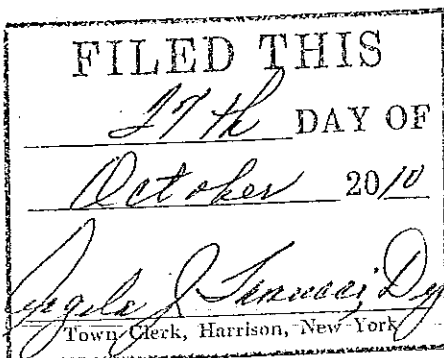 FILED THIS
27th DAY OF
October 2010
Angela J
Town Clerk, Harrison, New York